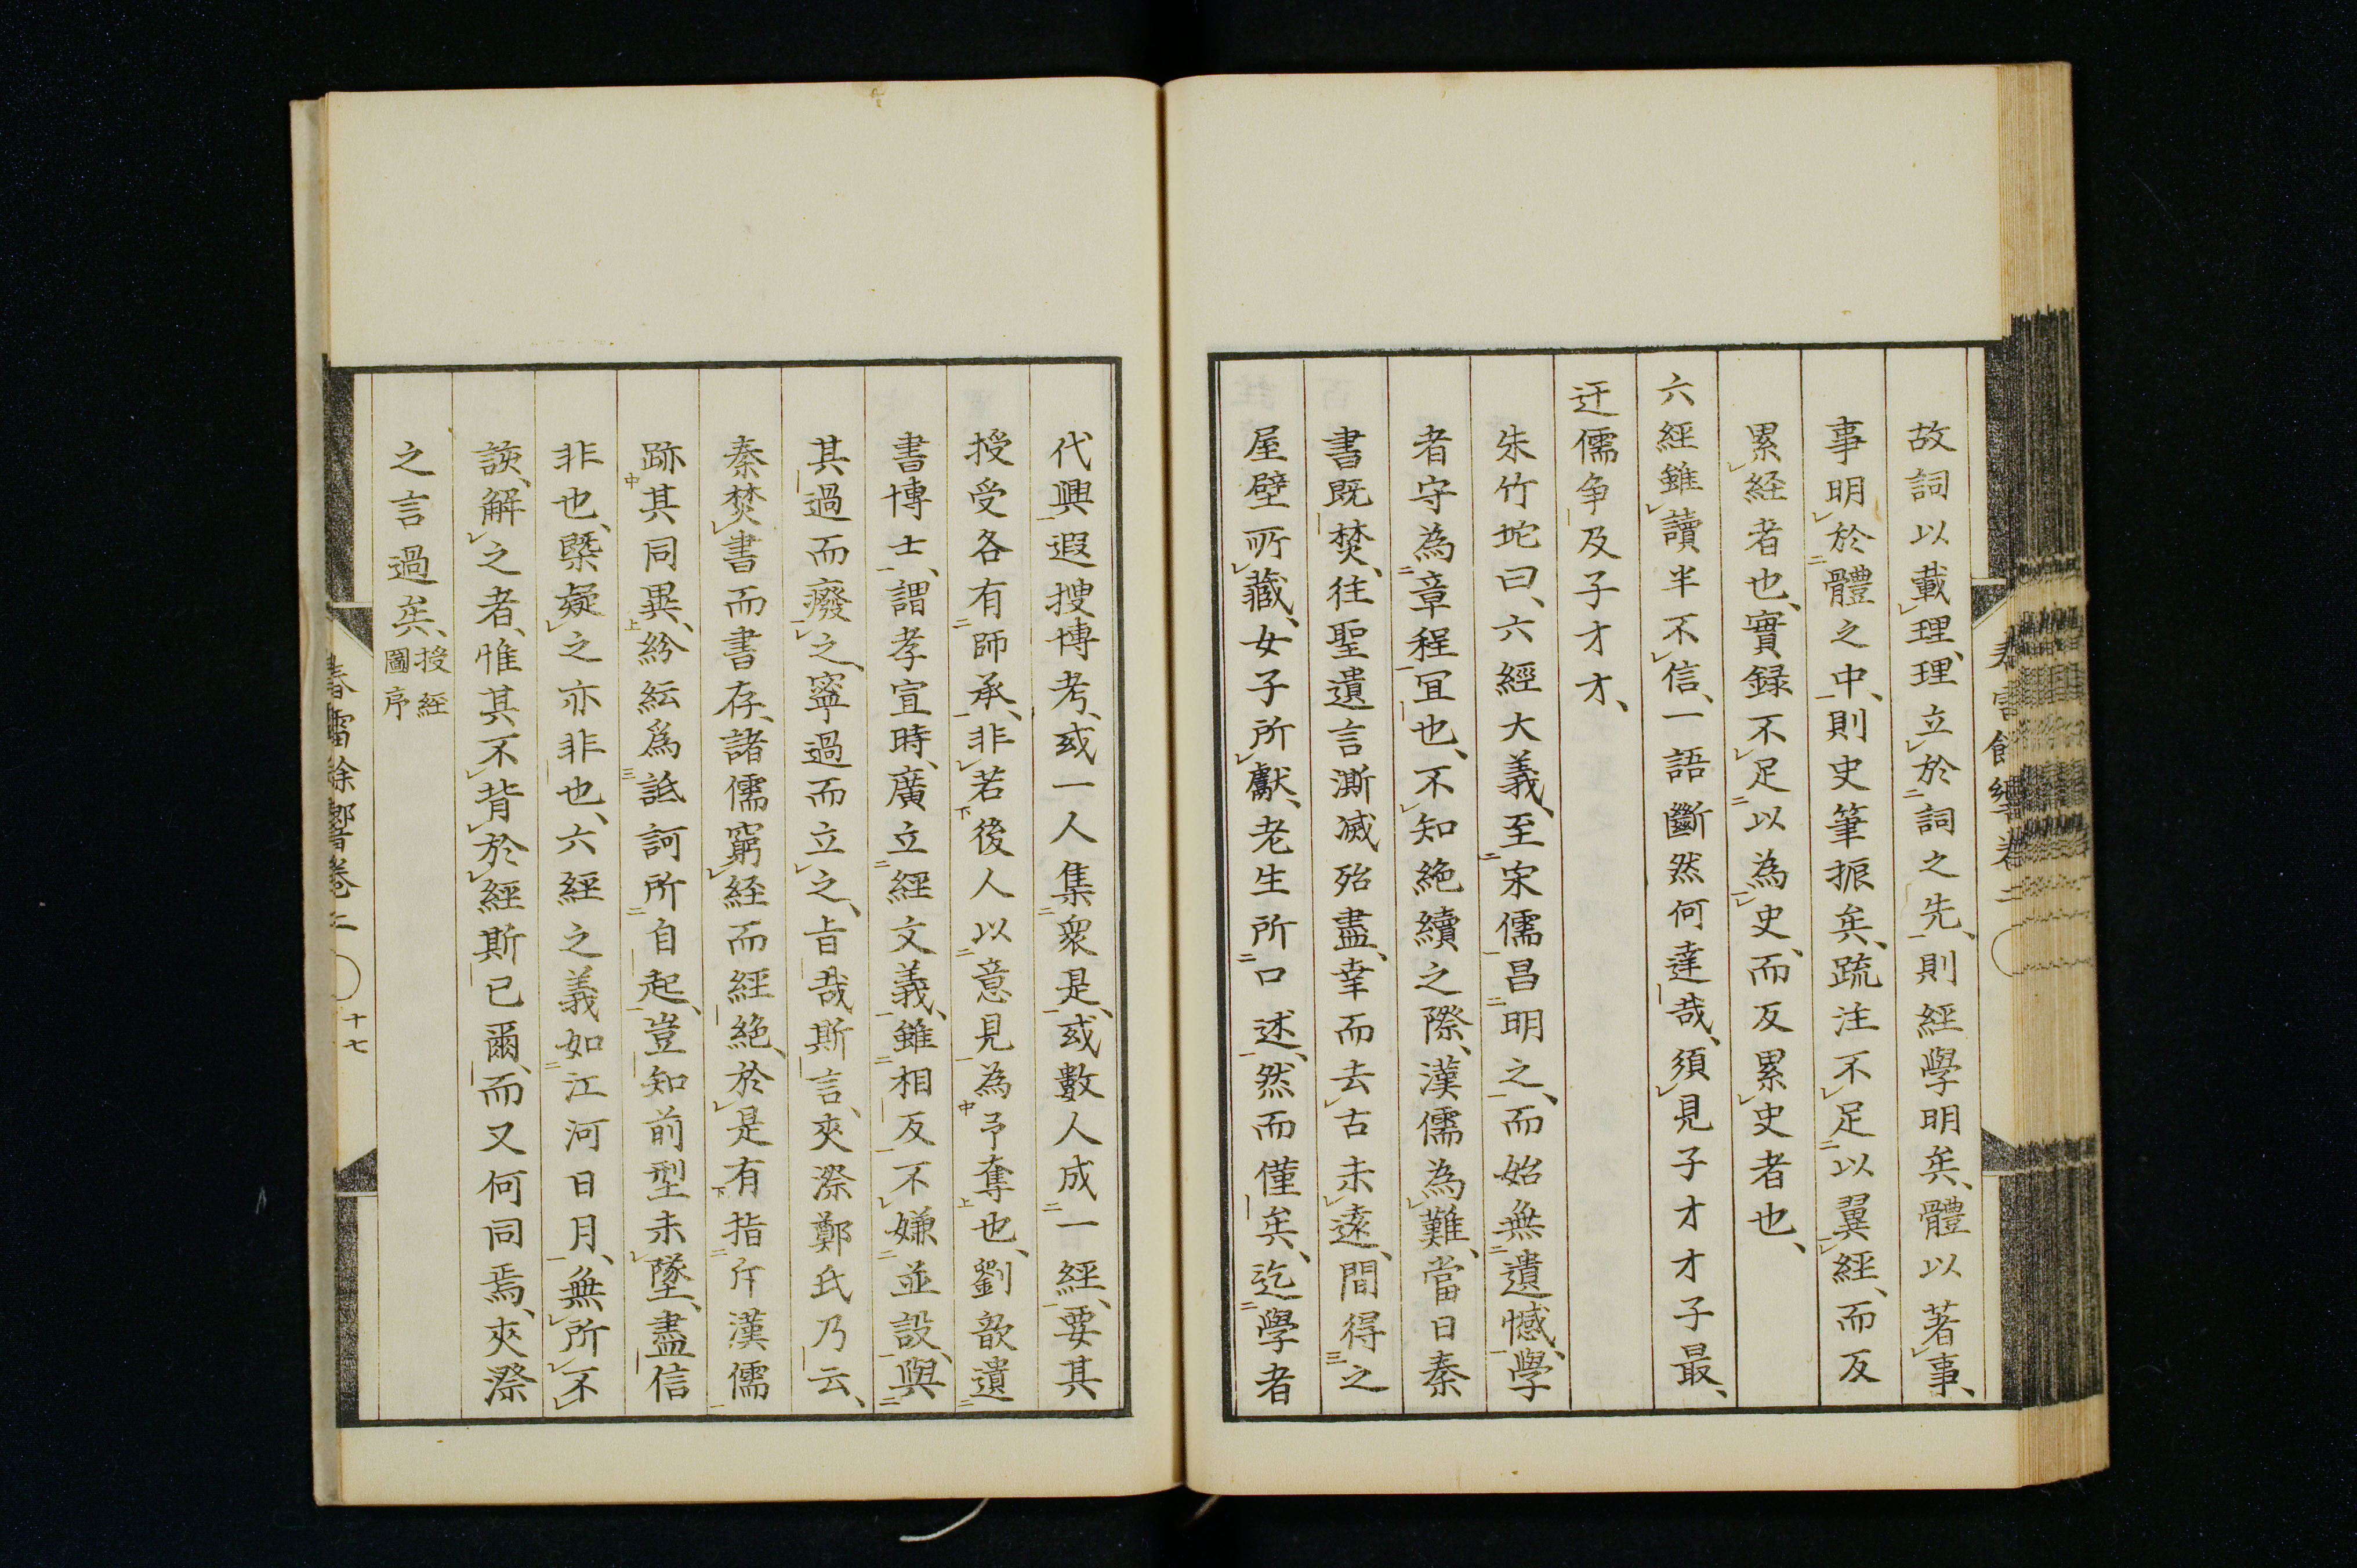 故詞以載理、理立於詞之先、則經學明矣、體以著事、
事明於體之中、則史筆振矣、疏注不足以翼經、而反
累経者也、實録不足以為史、而反累史者也、
六經雖讀半不信、一語斷然何達哉、須見子才才子最、
迂儒争及子才才、
朱竹坨曰、六經大義、至宋儒昌明之、而始無遺憾、學
者守為章程冝也、不知絶續之際、漢儒為難、當日秦
書既焚、往聖遺言澌滅殆盡、幸而去古未遠、間得之
屋壁所藏、女子所獻、老生所口述、然而僅矣、迄學者
代興、遐搜博考、或一人集衆是、或數人成一經、要其
授受各有師承、非若後人以意見為予奪也、劉歆遺
書博士、謂孝宣時、廣立經文義、雖相反、不嫌並設、與
其過而癈之、寧過而立之、旨哉斯言、夾漈鄭氏乃云、
秦焚書而書存、諸儒窮経而經絶、於是有指斥漢儒
跡其同異、紛紜爲詆訶所自起、豈知前型未墜、盡信
非也、槩疑之亦非也、六經之義如江河日月、無所不
該、解之者、惟其不背於經斯已爾、而又何同焉、夾漈
之言過矣、授經圖序
春雷餘響卷二 十七